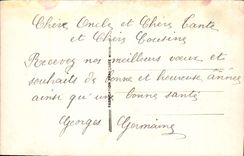 Chère Oncle et Chère Tante
et Chers Cousins
Recevez nos meilleurs vœux et
souhaits de bonne et heureuse année
ainsi qu'une bonne santé
Georges Germaine